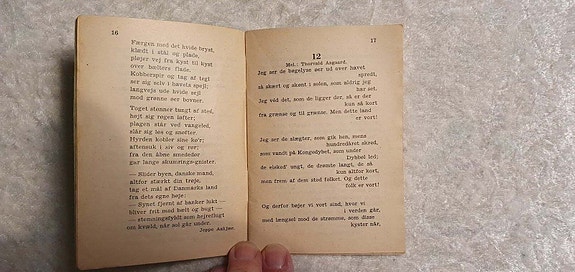 16
Færgen med det hvide bryst,
klædt i stål og plade,
pløjer vej fra kyst til kyst
over bælters flade.
Kobberspir og tag af tegl
ser sig selv i havets spejl;
langvejs ude hvide sejl
mod grønne øer bovner.
Toget stønner tungt af sted,
højt sig røgen løfter;
plagen står ved vangeled,
slår sig løs og snøfter.
Hyrden kobler sine kø'r;
aftensuk i siv og rør;
fra den åbne smededør
gar lange stumnings-gnister.
— Slider byen, danske mand,
altfor stærkt din trøje,
tag et mål af Danmarks land
fra dets egne høje:
— Synet fjernt af banker lukt —
bliver frit med højt og bugt —
— stemningsfyldt som hejreflugt
om kvæld, når sol går under.
Jeppe Aakjær.
17
12
Mel.: Thorvald Aagaard.
Jeg ser de bøgelyse øer ud over havet
spredt,
så skært og skønt i solen, som aldrig jeg
har set.
Jeg véd det, som de ligger der, så er der
kun så kort
fra grænse og til grænse. Men dette land
er vort!
Jeg ser de slægter, som gik hen, mens
hundredåret skred,
som vandt på Kongedybet, som under
Dybbøl led;
de elsked' ungt, de drømte langt, de så
kun altfor kort,
men frem af dem stod folket. Og dette
folk er vort!
Og derfor bøjer vi vort sind, hvor vi
i verden går,
med længsel mod de strømme, som disse
kyster når,